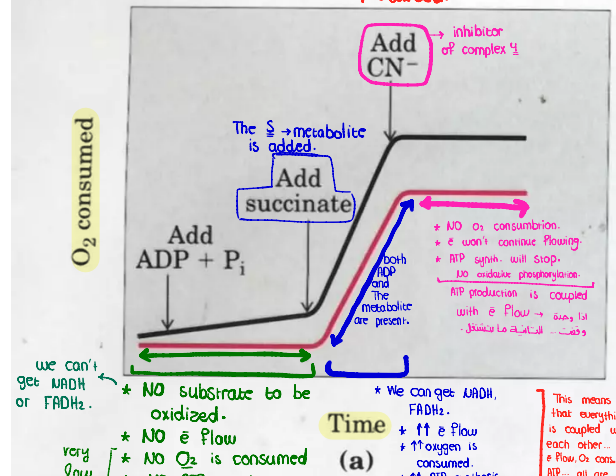 Add
CN⁻
→ inhibitor
of complex 4
The S → metabolite
is added.
Add
succinate
O₂ consumed
Add
ADP + Pᵢ
both
ADP
and
The
metabolite
are present.
* NO O₂ consumbtion.
* ē won't continue flowing.
* ATP synth. will stop.
NO oxidative phosphorylation.
ATP production is coupled
with ē flow → اذا وحدة
وقفت .. الثانية ما بتشتغل.
we can't
get NADH
or FADH₂.
* NO substrate to be
oxidized.
* NO ē flow
* NO O₂ is consumed
very
low
Time
(a)
* We can get NADH,
FADH₂.
* ↑↑ ē flow
* ↑↑ oxygen is
consumed.
This means
that everythi
is coupled w
each other...
ē flow, O₂ consu